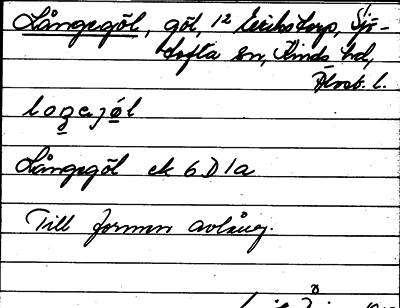 Långegöl, göl, 12 Erikstorp, Sjö-
tofta sn, Kinds hd,
Älvsb. l.
Långegöl ek 6D1a
Till formen avlång.